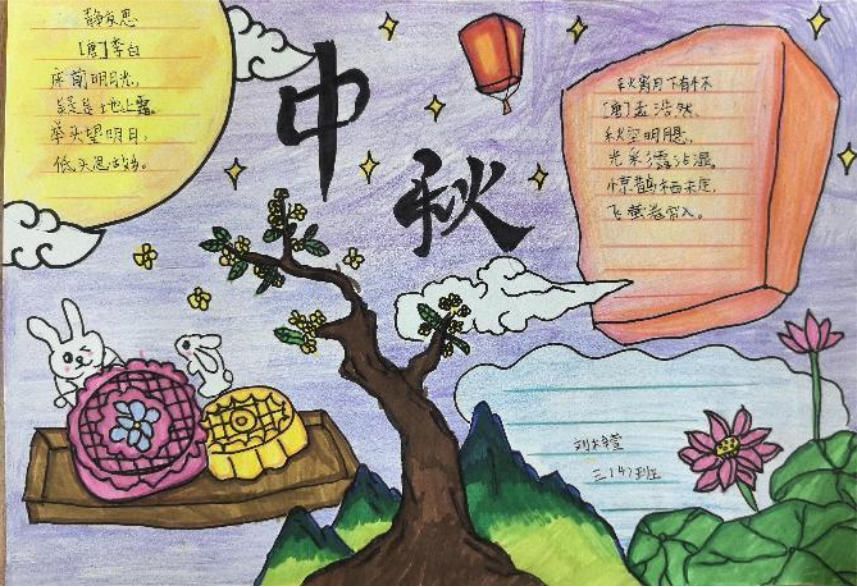 静夜思
[唐]李白
床前明月光,
疑是地上霜。
举头望明月,
低头思故乡。
中
秋
秋宵月下有怀
[唐]孟浩然
秋空明月悬,
光彩露沾湿。
惊鹊栖未定,
飞萤卷帘入。
三(4)班